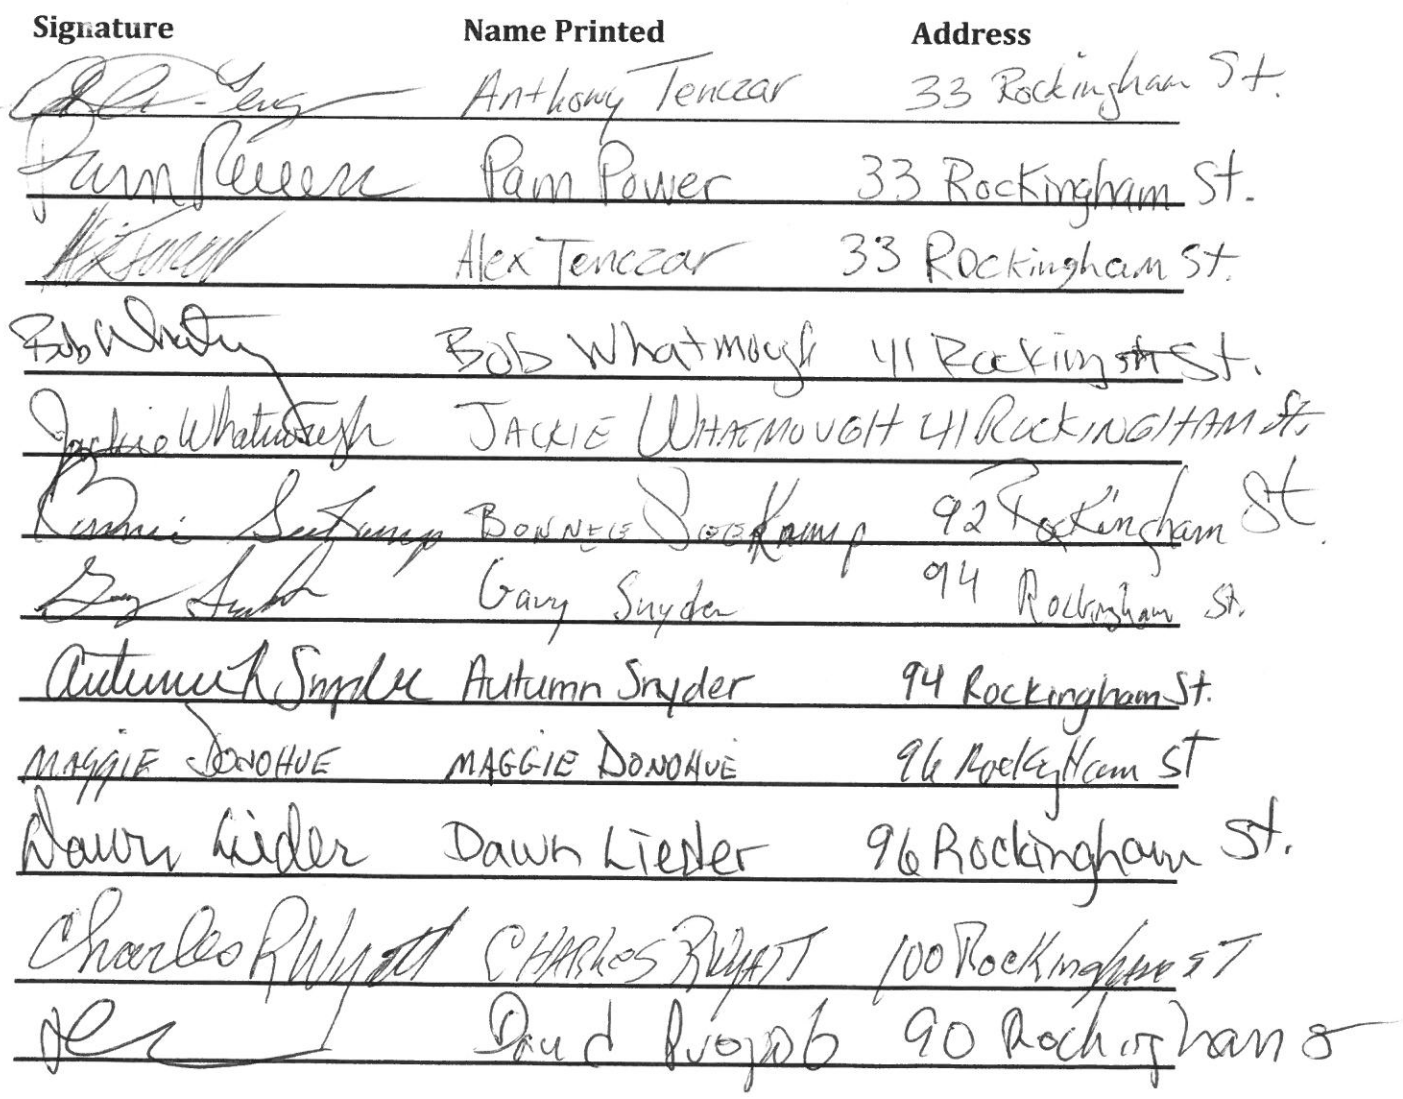 Signature Name Printed Address
Anthony Tenczar 33 Rockingham St.
Pam Power Pam Power 33 Rockingham St.
Alex Tenczar 33 Rockingham St.
Bob Whatmough Bob Whatmough 41 Rocking St.
Jackie Whatmough JACKIE WHATMOUGH 41 ROCKINGHAM St.
Bonnie Seekamp BONNIE SEEKamp 92 Rockingham St.
Gary Snyder 94 Rockingham St.
Autumn Snyder Autumn Snyder 94 Rockingham St.
MAGGIE DONOHUE MAGGIE DONOHUE 96 Rockingham ST
Dawn Lieder Dawn Lieder 96 Rockingham St.
Charles R Wyatt CHARLES R WYATT 100 Rockingham ST
David 90 Rockingham